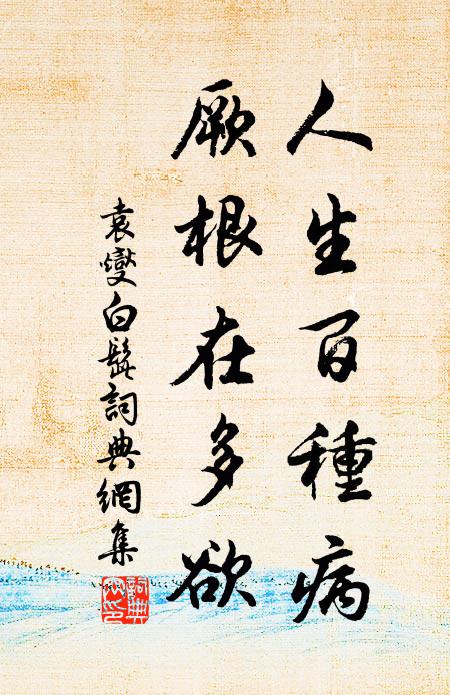 人生百種病
厥根在多欲
袁燮白髭詞典網集